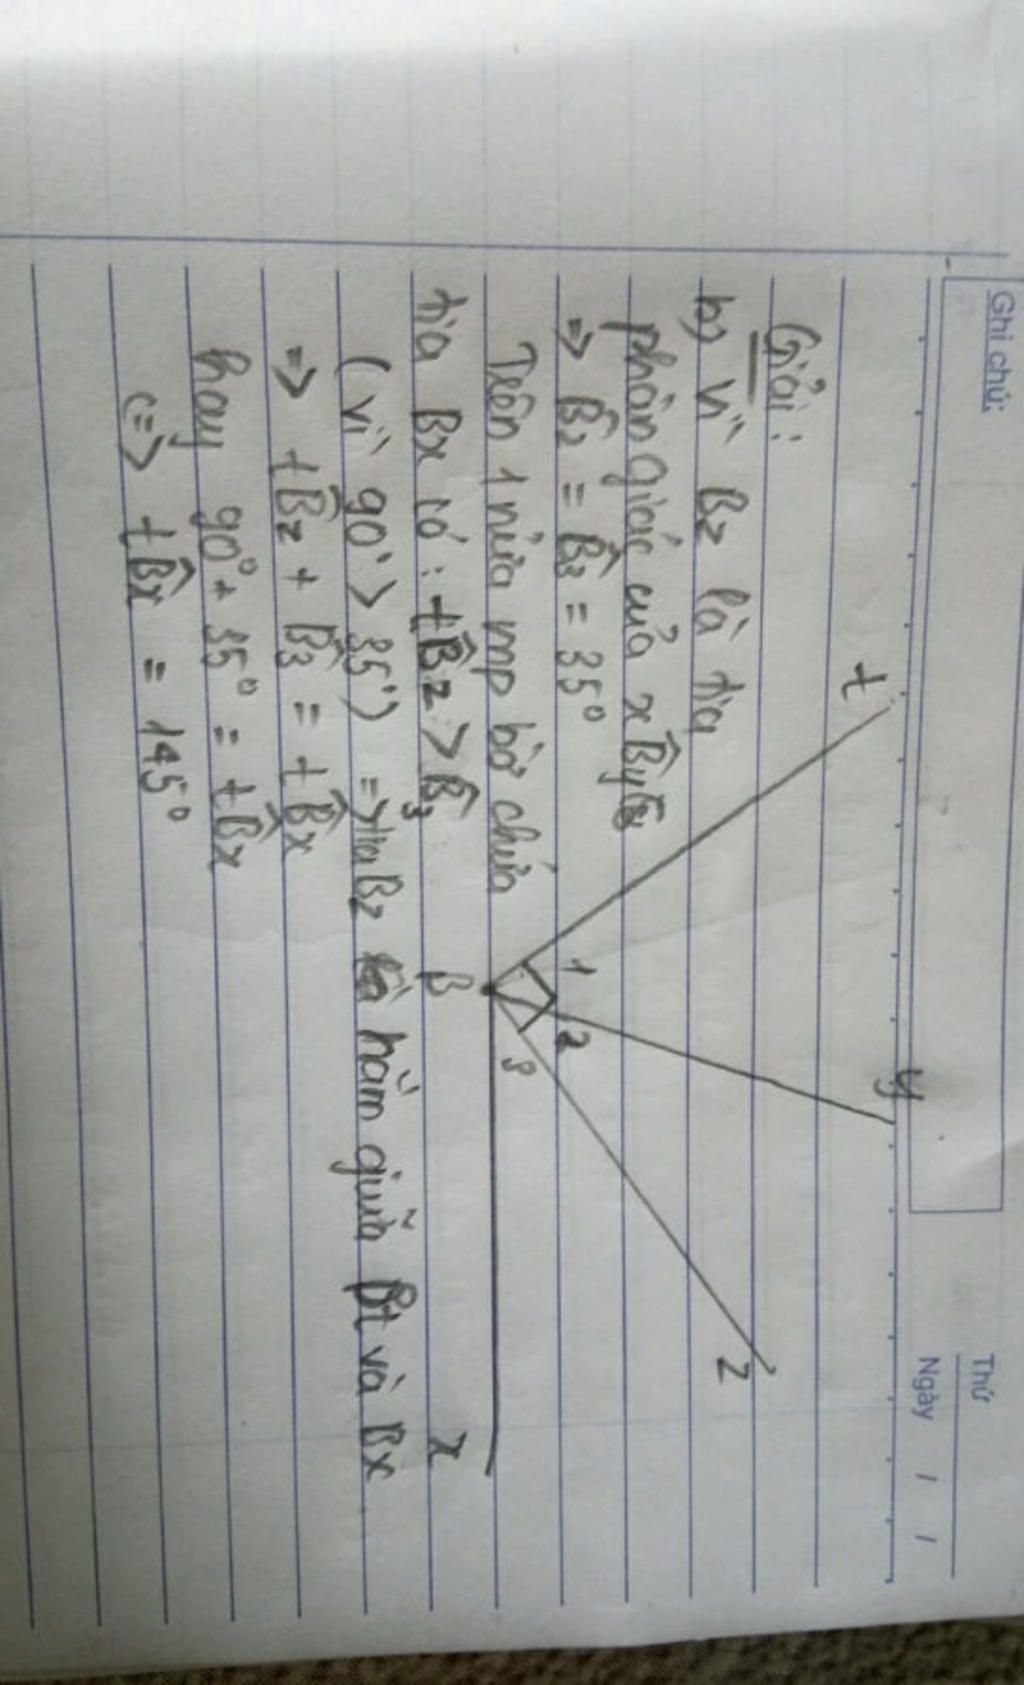 Ghi chú:
Thứ
Ngày / /
t
y
z
Giải:
b) Vì Bz là tia
phân giác của xB̂y
=> B̂2 = B̂3 = 35°
1
2
3
Trên 1 nửa mp bờ chứa
B
x
tia Bx có: tB̂z > B̂3
(vì 90° > 35°) => tia Bz nằm giữa Bt và Bx
=> tB̂z + B̂3 = tB̂x
hay 90° + 35° = tB̂x
<=> tB̂x = 145°